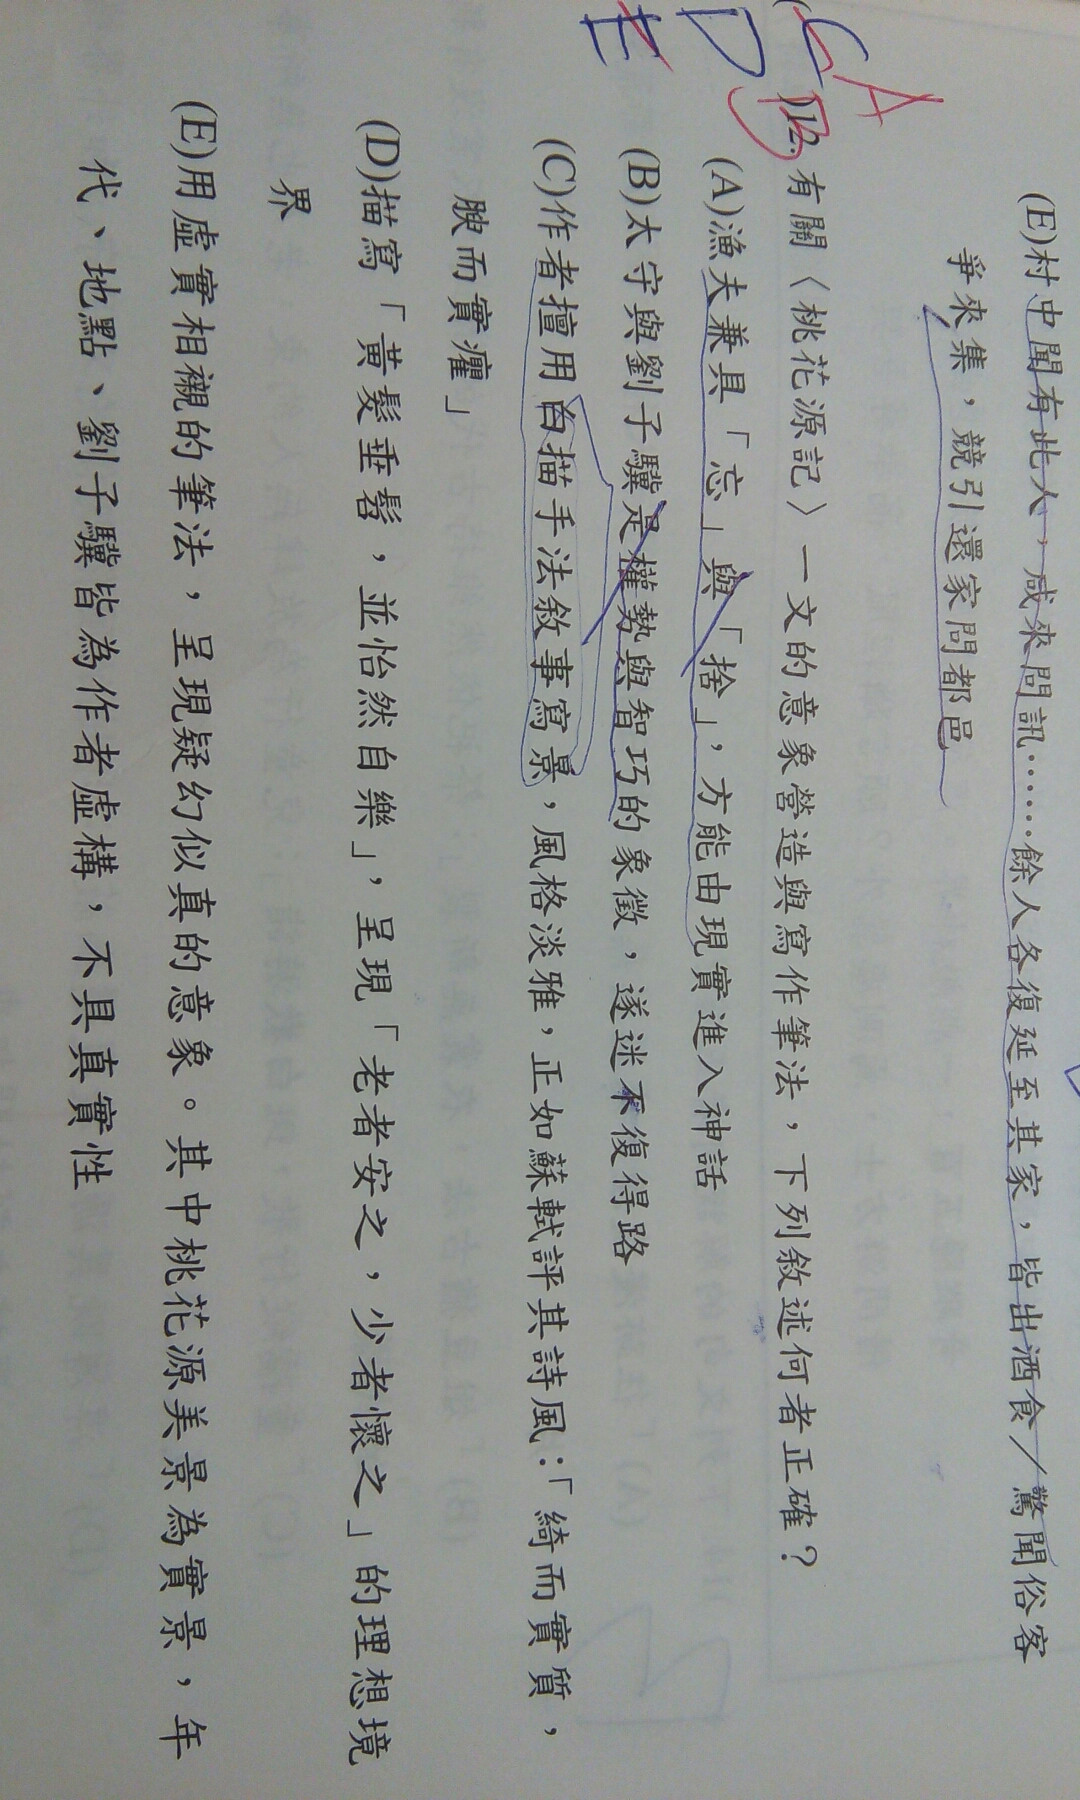 (E)村中聞有此人,咸來問訊……餘人各復延至其家,皆出酒食/驚聞俗客
爭來集,競引還家問都邑
C A
D B
E
)12.有關〈桃花源記〉一文的意象營造與寫作筆法,下列敘述何者正確?
(A)漁夫兼具「忘」與「捨」,方能由現實進入神話
(B)太守與劉子驥是權勢與智巧的象徵,遂迷不復得路
(C)作者擅用白描手法敘事寫景,風格淡雅,正如蘇軾評其詩風:「綺而實質,
腴而實癯」
(D)描寫「黃髮垂髫,並怡然自樂」,呈現「老者安之,少者懷之」的理想境
界
(E)用虛實相襯的筆法,呈現疑幻似真的意象。其中桃花源美景為實景,年
代、地點、劉子驥皆為作者虛構,不具真實性